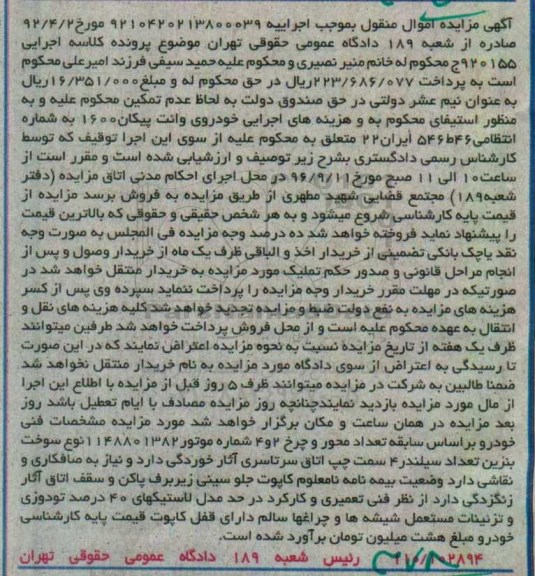 آگهی مزایده اموال منقول بموجب اجراییه ۹۲۱۰۴۲۰۲۱۳۸۰۰۰۳۹ مورخ۹۲/۴/۲
صادره از شعبه ۱۸۹ دادگاه عمومی حقوقی تهران موضوع پرونده کلاسه اجرایی
۹۲۰۱۵۵ج محکوم له خانم منیر نصیری و محکوم علیه حمید سیفی فرزند امیرعلی محکوم
است به پرداخت ۲۲۳/۶۸۶/۰۷۷ریال در حق محکوم له و مبلغ۱۶/۳۵۱/۰۰۰ریال
به عنوان نیم عشر دولتی در حق صندوق دولت به لحاظ عدم تمکین محکوم علیه و به
منظور استیفای محکوم به و هزینه های اجرایی خودروی وانت پیکان۱۶۰۰ به شماره
انتظامی۴۶ط۵۴۶ ایران۲۲ متعلق به محکوم علیه از سوی این اجرا توقیف که توسط
کارشناس رسمی دادگستری بشرح زیر توصیف و ارزشیابی شده است و مقرر است از
ساعت۱۰ الی ۱۱ صبح مورخ۹۶/۹/۱۱ در محل اجرای احکام مدنی اتاق مزایده (دفتر
شعبه۱۸۹) مجتمع قضایی شهید مطهری از طریق مزایده به فروش برسد مزایده از
قیمت پایه کارشناسی شروع میشود و به هر شخص حقیقی و حقوقی که بالاترین قیمت
را پیشنهاد نماید فروخته خواهد شد ده درصد وجه مزایده فی المجلس به صورت وجه
نقد یاچک بانکی تضمینی از خریدار اخذ و الباقی ظرف یک ماه از خریدار وصول و پس از
انجام مراحل قانونی و صدور حکم تملیک مورد مزایده به خریدار منتقل خواهد شد در
صورتیکه در مهلت مقرر خریدار وجه مزایده را پرداخت ننماید سپرده وی پس از کسر
هزینه های مزایده به نفع دولت ضبط و مزایده تجدید خواهد شد کلیه هزینه های نقل و
انتقال به عهده محکوم علیه است و از محل فروش پرداخت خواهد شد طرفین میتوانند
ظرف یک هفته از تاریخ مزایده نسبت به نحوه مزایده اعتراض نمایند که در این صورت
تا رسیدگی به اعتراض از سوی دادگاه مورد مزایده به نام خریدار منتقل نخواهد شد
ضمنا طالبین به شرکت در مزایده میتوانند ظرف ۵ روز قبل از مزایده با اطلاع این اجرا
از مال مورد مزایده بازدید نمایندچنانچه روز مزایده مصادف با ایام تعطیل باشد روز
بعد مزایده در همان ساعت و مکان برگزار خواهد شد مورد مزایده مشخصات فنی
خودرو براساس سابقه تعداد محور و چرخ ۲و۴ شماره موتور۱۱۴۸۸۰۱۳۸۲نوع سوخت
بنزین تعداد سیلندر۴ سمت چپ اتاق سرتاسری آثار خوردگی دارد و نیاز به صافکاری و
نقاشی دارد وضعیت بیمه نامه نامعلوم کاپوت جلو سینی زیربرف پاکن و سقف اتاق آثار
زنگزدگی دارد از نظر فنی تعمیری و کارکرد در حد مدل لاستیکهای ۴۰ درصد تودوزی
و تزئینات مستعمل شیشه ها و چراغها سالم دارای قفل کاپوت قیمت پایه کارشناسی
خودرو مبلغ هشت میلیون تومان برآورد شده است.
رئیس شعبه ۱۸۹ دادگاه عمومی حقوقی تهران